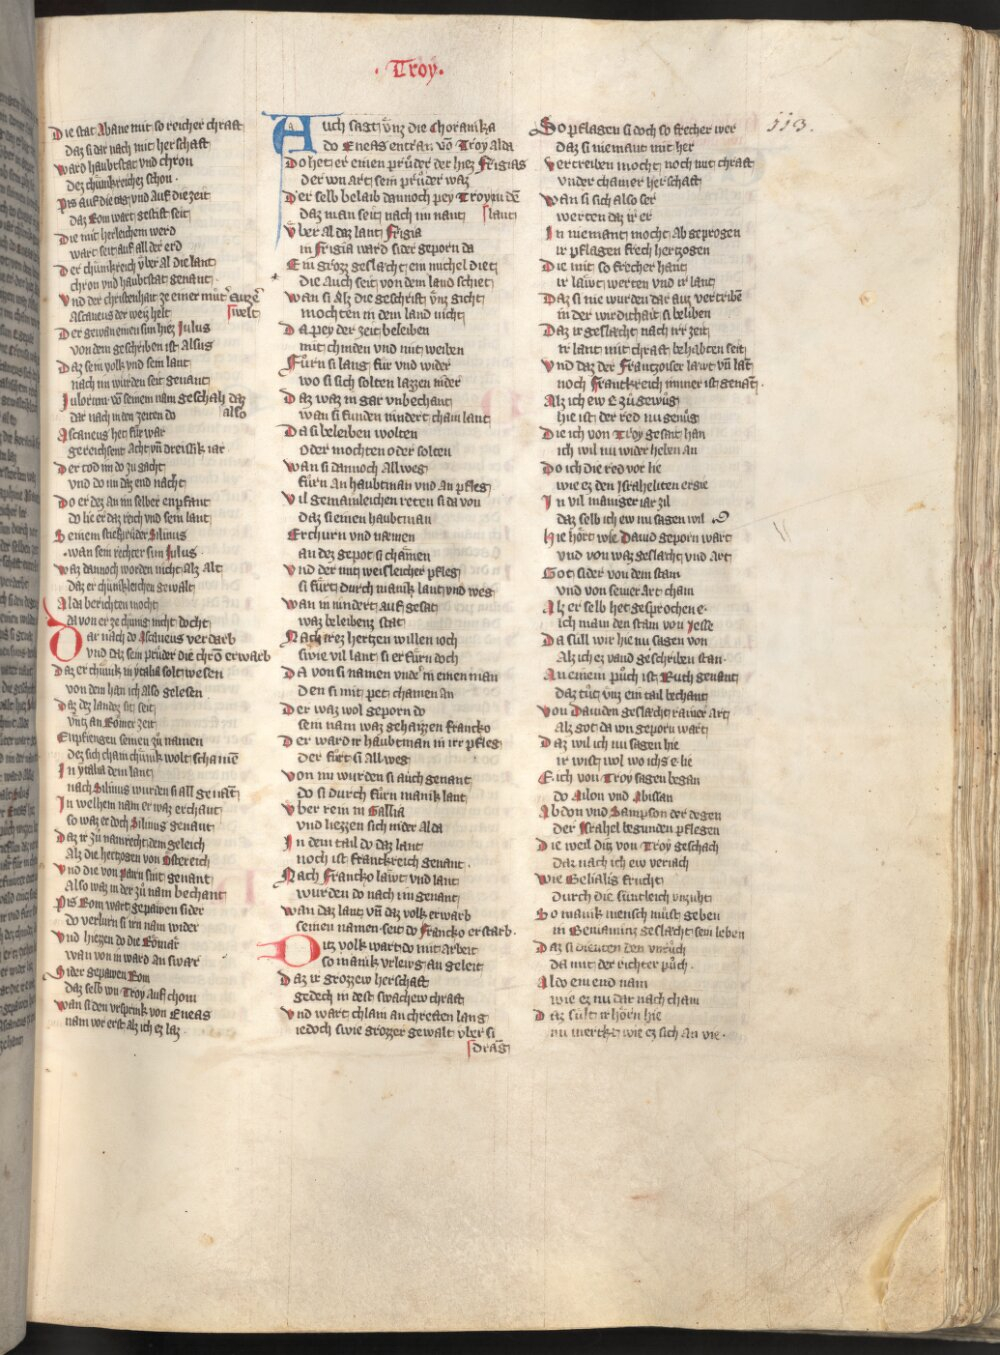 · Troy ·
113.
Die stat Abane mit so reicher chraft
daz si dar nach mit herschaft
Ward haubtstat vnd chron
dez chünikreichez schon ·
Pis auf die tag vnd auf die zeit
daz Rom wart gestift seit
Die mit herleichem werd
wart seit auf all der erd
Der chünikreich vber al die lant
chron vnd haubtstat genant ·
Vnd der christenhait ze einer mut
Ascaneus der weiz helt
swelt
Der gewan einen sun hiez Julus
von dem geschriben ist alsus
Daz sein volk vnd sein lant
nach im wurden seit genant
Julorum võ seinem nam geschah daz
dar nach in den zeiten do
also
Ascaneus het für war
gereichsent acht vñ dreissik iar
Der tod im do zu gacht
vnd do im daz end nacht
Do er dez an im selber enpfant
do lie er daz reich vnd sein lant
Seinem stiefprüder Silinus
wan sein rechter sun Julus ·
Waz dannoch worden nicht alz alt
daz er chünikleichen gewalt
Alda berichten mocht
da von er ze chünig nicht docht
Dar nach do Ascaneus verdarb
vnd daz sein prüder die chrõ erwarb
Daz er chünik in ytalia solt wesen
von dem han ich also gelesen
Daz dez landez sit seit
vntz an Römer zeit
Enpfiengen seinen zü namen
dez sich cham chünik wolt schamē
In ytalia dem lant
nach Silinus wurden si all genãt
In welhem nam er waz erchant
so waz er doch Silinus genant
Daz ir zü nam recht dem geleich
Alz die hertzogen von Osterreich
Vnd die von Pairn sint genant
Also waz in der zü nam bechant
Pis Rom wart gepawen sider
do verlurn si irn nam wider
Vnd hiezzen do die Römär
wan von in ward an swär
Sider gepawen Rom
daz selb von Troy auf chom
Wan si den vrsprink von Eneas
nam vor erst alz ich ez laz
Auch sagt vnz die Choranika
do Eneas entran võ Troy alda
Do het er einen prüder der hiez Frigias
der von art sein prüder waz
Der selb belaib dannoch pey Troyin dē
daz man seit nach im nant
slant
Vber al daz lant Frigia
in Frigia ward sider geporn da
Ein grozz geslacht ein michel diet
die auch seit von dem land schiet
Wan si alz die geschrift vnz gicht
mochten in dem land nicht
Da pey der zeit beleiben
mit chinden vnd mit weiben
Fürn si lang für vnd wider
wo si sich solten lazzen nider
Daz waz in gar vnbechant
wan si funden nindert cham lant
Da si beleiben wolten
oder mochten oder solten
Wan si dannoch allweg
fürn an haubtman vnd an pfleg
Vil gemainleichen reten si da von
daz si einen haubtman
Erchurn vnd namen
an dez gepot si chämen
Vnd der mit weisleicher pfleg
si fürt durch manik lant vnd weg
Wan in nindert auf gesat
waz beleibenz stat
Nach irez hertzen willen ioch
swie vil lant si er fürn doch
Da von si namen vnder in einen man
den si mit pet chamen an
Der waz wol geporn do
sein nam waz gehaizzen francko
Der ward ir haubtman in irr pfleg
der fürt si allweg
Von im wurden si auch genant
do si durch fürn manik lant
Vber rein in Gallia
vnd liezzen sich nider alda
In dem tail do daz lant
noch ist franckreich genant ·
Nach Francko lawt vnd lant
wurden do nach im genant
Wan daz lant vñ daz volk erwarb
seinen namen seit do Francko erstarb ·
Ditz volk wart do mit arbeit
so manik vrleug an geleit
Daz ir grozzew herschaft
gedech in dest swacher chraft
Vnd wart chlam an chreften lang
iedoch swie grozzer gewalt vber si
drang
So pflagen si doch so frecher wer
daz si niemant mit her
Vertreiben mocht noch mit chraft
vnder chainer herschaft
Wan si sich also ser
werten daz ir er
In niemant mocht ab geprogen
ir pflagen frech hertzogen
Die mit so frecher hant
ir lawt werten vnd ir lant
Daz si nie wurden dar auz vertribē
in der wirdichait si beliben
Daz ir geslacht nach irr zeit
ir lant mit chraft behabten seit
Vnd daz der Frantzoiser lawt vñ lãt
noch Franckreich immer ist genãt ·
Alz ich ew E zü gewüg
hie ist der red nu genüg
Die ich von Troy gesait han
ich wil nu wider heben an
Do ich die red vor lie
wie ez den Israheliten ergie
In vil maniger iar zil
daz selb ich ew nu sagen wil
Hie hört wie Dauid geporn wart
vnd von waz geslacht vnd art
Got sider von dem stam
vnd von seiner art cham
Alz er selb het gesprochen e ·
ich main den stam von Jesse
Da süll wir hie nu sagen von
Alz ich ez vand geschriben stan ·
An einem püch ist Ruth genant
daz tüt vnz ein tail bechant
Von Dauiden geslacht rainer art
alz got da von geporn wart
Daz wil ich nu sagen hie
ir wist wol wo ichs e lie
E ich von Troy sagen began
do Ailon vnd Abissan
Abdon vnd Sampson der degen
der Israhel begunden pflegen
Die weil ditz von Troy geschach
daz nach ich ew veriach
Wie Belialis frucht
durch die süntleich vnzuht
So manik mensch müst geben
in Beniamins geslacht sein leben
Daz si dienten den vnrüch
da mit der richter püch ·
Aldo ein end nam
wie ez nu dar nach cham
Daz sült ir hörn hie
nu merket wie ez sich an vie ·